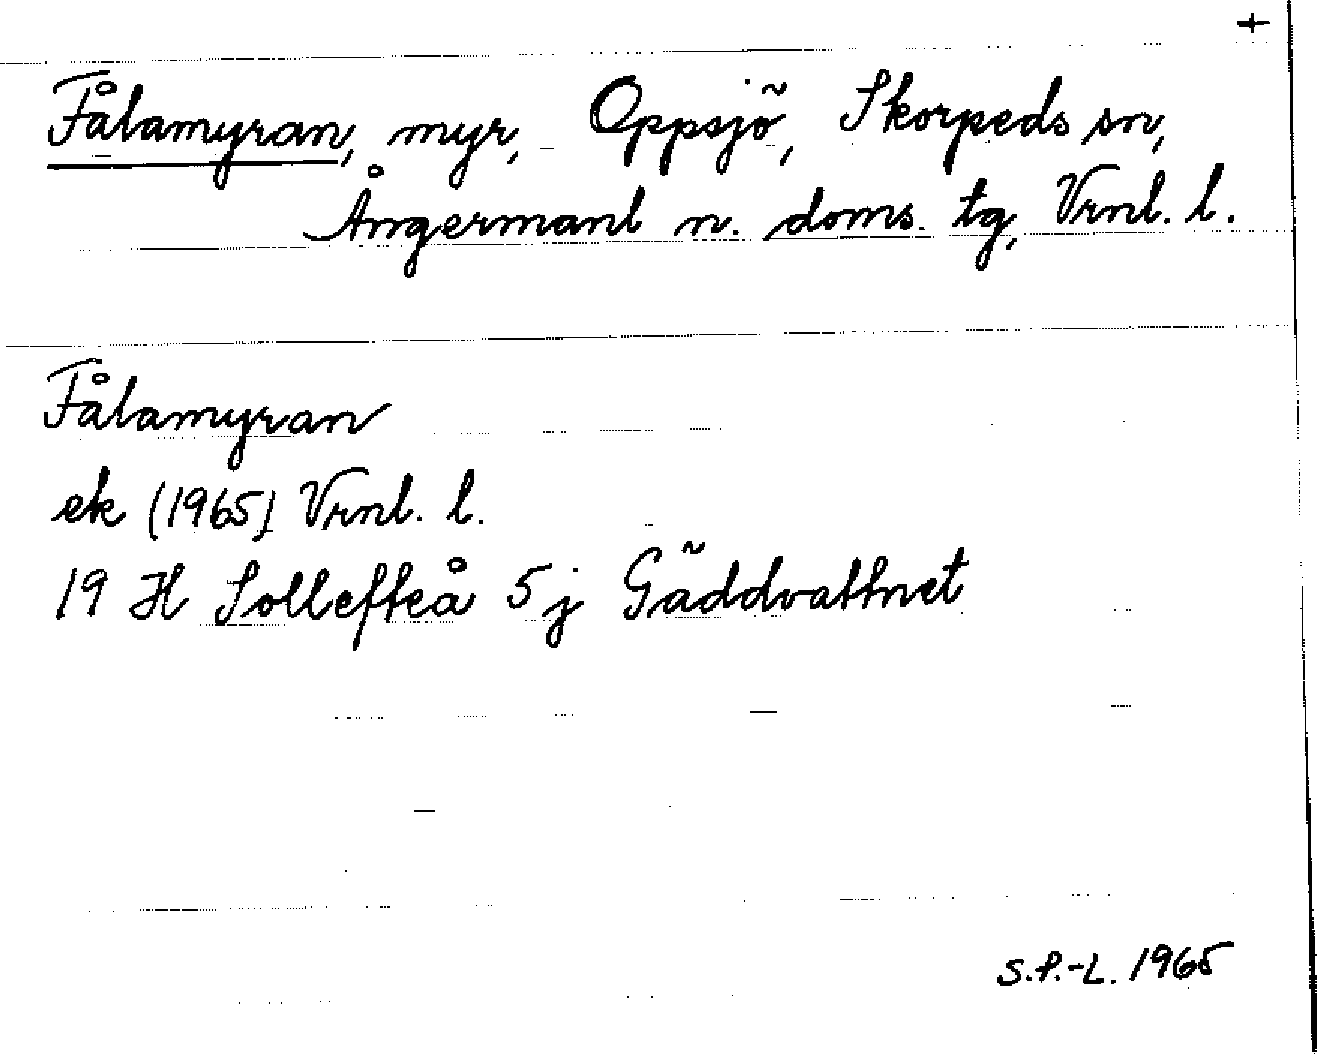 +
Fålamyran, myr, Oppsjö, Skorpeds sn,
Ångermanl n. doms. tg, Vrnl. l.
Fålamyran
ek (1965) Vrnl. l.
19 H Sollefteå 5j Gäddvattnet
S.P.-L. 1965